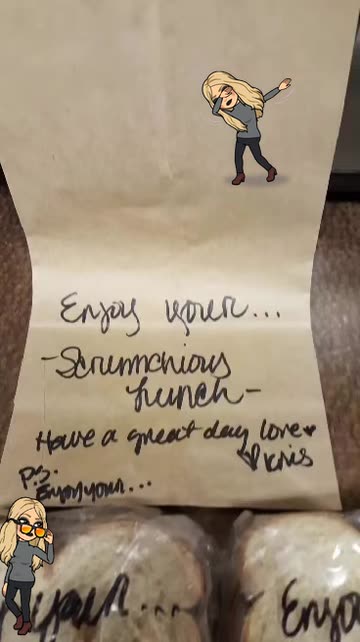 Enjoy your...
-Scrumchious
Lunch-
Have a great day love♥
♥Kris
P.S.
Enjoy your...
your...
Enjo